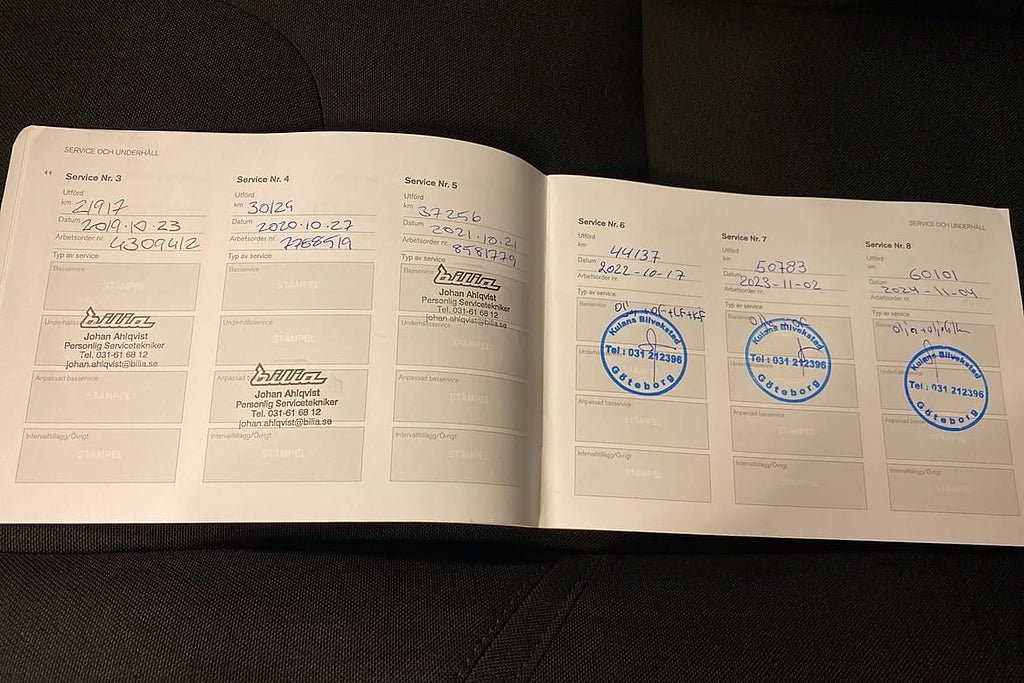 SERVICE OCH UNDERHÅLL
Service Nr. 3
Utförd
km 21917
Datum 2019.10.23
Arbetsorder nr. 4309412
Typ av service
Basservice
Underhållsservice
bilia
Johan Ahlqvist
Personlig Servicetekniker
Tel. 031-61 68 12
johan.ahlqvist@bilia.se
Anpassad basservice
STÄMPEL
Intervalltillägg/Övrigt
STÄMPEL
Service Nr. 4
Utförd
km 30129
Datum 2020.10.27
Arbetsorder nr. 7768519
Typ av service
Basservice
STÄMPEL
Underhållsservice
STÄMPEL
Anpassad basservice
bilia
Johan Ahlqvist
Personlig Servicetekniker
Tel. 031-61 68 12
johan.ahlqvist@bilia.se
Intervalltillägg/Övrigt
STÄMPEL
Service Nr. 5
Utförd
km 37256
Datum 2021.10.21
Arbetsorder nr. 8581779
Typ av service
Basservice
bilia
Johan Ahlqvist
Personlig Servicetekniker
Tel. 031-61 68 12
johan.ahlqvist@bilia.se
Underhållsservice
STÄMPEL
Anpassad basservice
STÄMPEL
Intervalltillägg/Övrigt
STÄMPEL
SERVICE OCH UNDERHÅLL
Service Nr. 6
Utförd
km 44137
Datum 2022-10-17
Arbetsorder nr.
Typ av service
Basservice
Kulans Bilverkstad
Tel : 031 212396
Göteborg
Anpassad basservice
STÄMPEL
Intervalltillägg/Övrigt
STÄMPEL
Service Nr. 7
Utförd
km 50783
Datum 2023-11-02
Arbetsorder nr.
Typ av service
Kulans Bilverkstad
Tel : 031 212396
Göteborg
Anpassad basservice
STÄMPEL
Intervalltillägg/Övrigt
STÄMPEL
Service Nr. 8
Utförd
km 60101
Datum 2024-11-04
Arbetsorder nr.
Typ av service
Kulans Bilverkstad
Tel : 031 212396
Göteborg
Anpassad basservice
Intervalltillägg/Övrigt
STÄMPEL